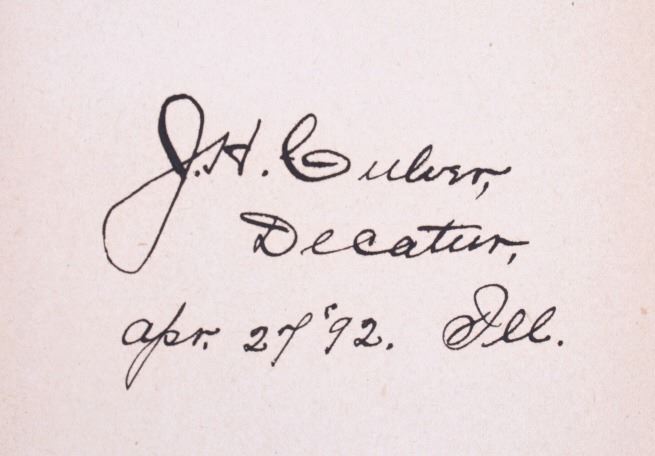 J. H. Culver,
Decatur,
Apr. 27 '92. Ill.